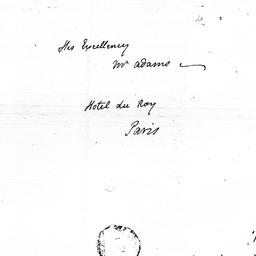 His Excellency
Mr adams
Hotel du Roy
Paris